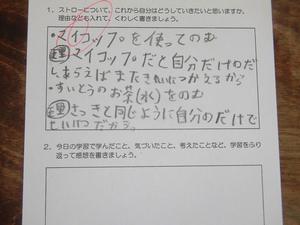 1. ストローについて、これから自分はどうしていきたいと思いますか。
理由なども入れて、くわしく書きましょう。
・マイコップを使ってのむ
理マイコップだと自分だけのだ
しあらえばまたきれいにつかえるから
・すいとうのお茶(水)をのむ
理さっきと同じように自分のだけで
せいけつだから。
2. 今日の学習で学んだこと、気づいたこと、考えたことなど、学習をふり
返って感想を書きましょう。